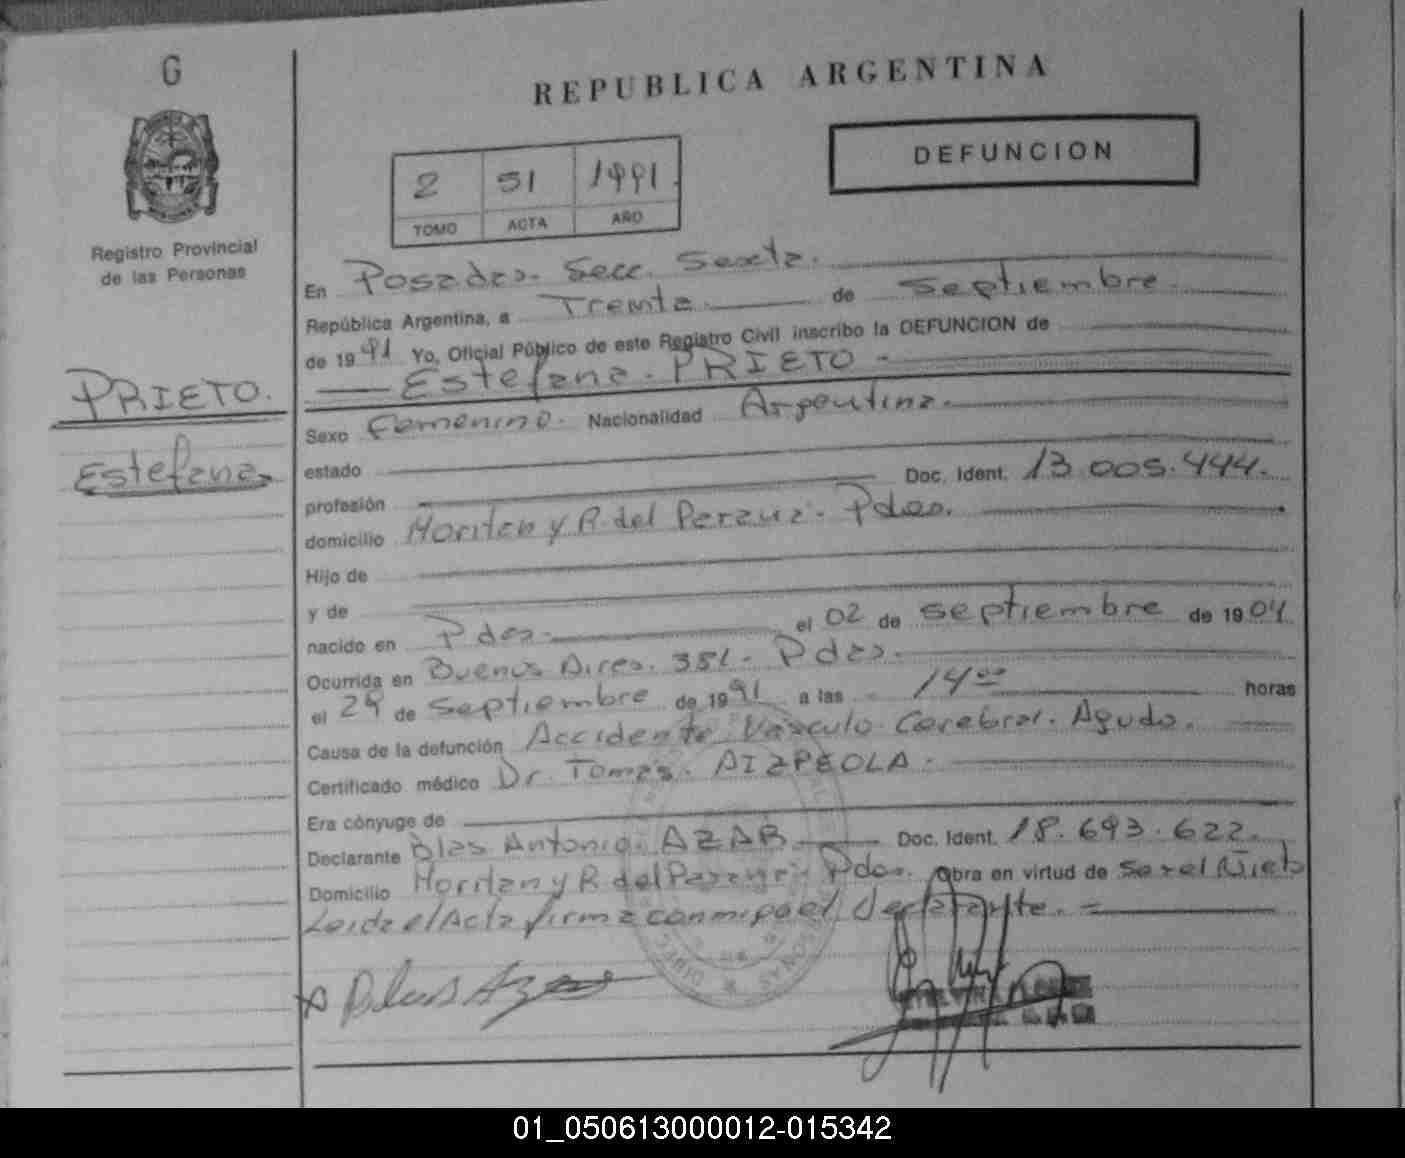 G
REPUBLICA ARGENTINA
DEFUNCION
2 51 1991
TOMO ACTA AÑO
Registro Provincial
de las Personas
PRIETO.
Estefana
En Posadas. Secc. Sexta.
República Argentina, a Treinta de Septiembre
de 1991 Yo, Oficial Público de este Registro Civil inscribo la DEFUNCION de
Estefana. PRIETO
Sexo Femenino. Nacionalidad Argentina.
estado
profesión Doc. Ident. 13.005.444.
domicilio y R. del Pdas.
Hijo de
y de
nacido en Pdas. el 02 de septiembre de 1904
Ocurrida en Buenos Aires. 351. Pdas.
el 29 de septiembre de 1991 a las 14 00 horas
Causa de la defunción Accidente Vasculo Cerebral. Agudo.
Certificado médico Dr. Tomas. AIZPEOLA.
Era cónyuge de
Declarante Blas Antonio. AZAR Doc. Ident. 18.693.622.
Domicilio y R. del Pdas. Obra en virtud de Ser el Nieto
Leida el Acta firma conmigo el declarante. =
Blas Azar
01_050613000012-015342